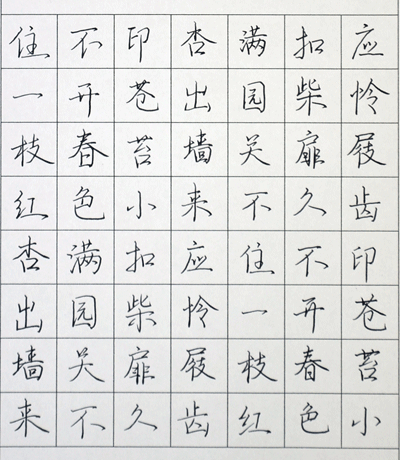 应怜屐齿印苍苔小
扣柴扉久不开春色
满园关不住一枝红
杏出墙来应怜屐齿
印苍苔小扣柴扉久
不开春色满园关不
住一枝红杏出墙来